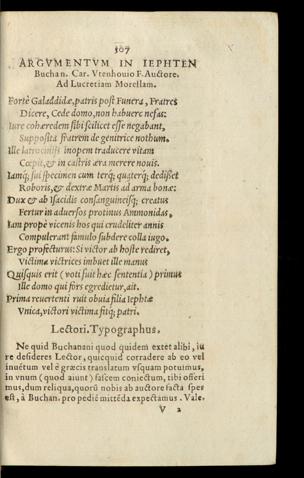 307
ARGVMENTVM IN IEPHTEN
Buchan. Car. Vtenhouio F. Auctore.
Ad Lucretiam Morellam.
Fortè Galaddidæ, patris post funera, Fratres
Dicere, Cede domo, non habuere nefas:
Iure cohæredem sibi scilicet esse negabant,
Suppositâ fratrem de genitrice nothum.
Ille latrocinijs inopem traducere vitam
Cœpit, & in castris æra merere nouis.
Iamq; sui specimen cum terq; quaterq; dedisset
Roboris, & dextræ Martis ad arma bonæ:
Dux & ab Isacidis consanguineisq; creatus
Fertur in aduersos protinus Ammonidas,
Iam propè vicenis hos qui crudeliter annis
Compulerant famulo subdere colla iugo.
Ergo profecturus: Si victor ab hoste rediret,
Victimæ victrices imbuet ille manus
Quisquis erit (voti suit hæc sententia) primus
Ille domo qui fors egredietur, ait.
Prima reuertenti ruit obuia filia Iephtæ
Vnica, victori victima fitq; patri.
Lectori. Typographus.
Ne quid Buchanani quod quidem extet alibi, iu
re desideres Lector, quicquid corradere ab eo vel
inuétum vel è græcis translatum vsquam potuimus,
in vnum (quod aiunt) fascem coniectum, tibi offeri
mus, dum reliqua, quorū nobis ab auctore facta spes
est, à Buchan. pro pedié mittēda expectamus. Vale.
V 2